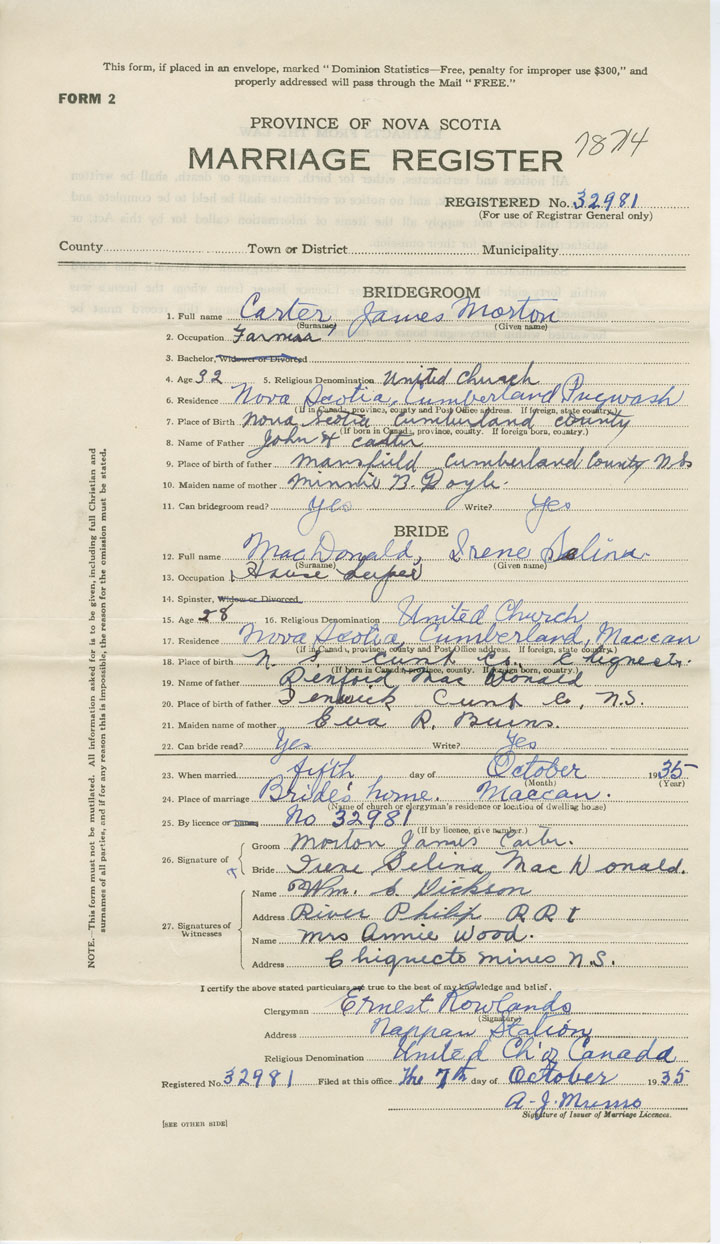 This form, if placed in an envelope, marked "Dominion Statistics—Free, penalty for improper use $300," and
properly addressed will pass through the Mail "FREE."
FORM 2
PROVINCE OF NOVA SCOTIA
MARRIAGE REGISTER 7874
REGISTERED No. 32981
(For use of Registrar General only)
County Town or District Municipality
BRIDEGROOM
1. Full name Carter, James Morton
(Surname) (Given name)
2. Occupation Farmer
3. Bachelor, Widower or Divorced
4. Age 32 5. Religious Denomination United Church
6. Residence Nova Scotia, Cumberland Pugwash
(If in Canada, province, county and Post Office address. If foreign, state country.)
7. Place of Birth Nova Scotia Cumberland County
(If born in Canada, province, county. If foreign born, country.)
8. Name of Father John H Carter
9. Place of birth of father Mansfield Cumberland County N S
10. Maiden name of mother Minnie B. Doyle.
11. Can bridegroom read? Yes Write? Yes
BRIDE
12. Full name MacDonald, Irene Selina
(Surname) (Given name)
13. Occupation House keeper
14. Spinster, Widow or Divorced
15. Age 28 16. Religious Denomination United Church
17. Residence Nova Scotia, Cumberland, Maccan
(If in Canada, province, county and Post Office address. If foreign, state country.)
18. Place of birth N. S. Cumb Co. Chignecto.
(If born in Canada, province, county. If foreign born, country.)
19. Name of father Benford Mac Donald
20. Place of birth of father Fenwick Cumb Co, N.S.
21. Maiden name of mother Eva R. Burns.
22. Can bride read? Yes Write? Yes
23. When married fifth day of October 1935
(Month) (Year)
24. Place of marriage Bride's home. Maccan.
(Name of church or clergyman's residence or location of dwelling house)
25. By licence or banns No 32981
(If by licence, give number.)
26. Signature of Groom Morton James Carter.
Bride Irene Selina MacDonald.
27. Signatures of Witnesses
Name Wm. S Dickson
Address River Philip R R 1
Name Mrs Annie Wood.
Address Chignecto mines N.S.
I certify the above stated particulars are true to the best of my knowledge and belief.
Clergyman Ernest Rowlands
(Signature)
Address Nappan Station
Religious Denomination United Ch' of Canada
Registered No. 32981 Filed at this office the 7th day of October 1935
A. J. Munro
Signature of Issuer of Marriage Licences.
[SEE OTHER SIDE]
NOTE.—This form must not be mutilated. All information asked for is to be given, including full Christian and
surnames of all parties, and if for any reason this is impossible, the reason for the omission must be stated.